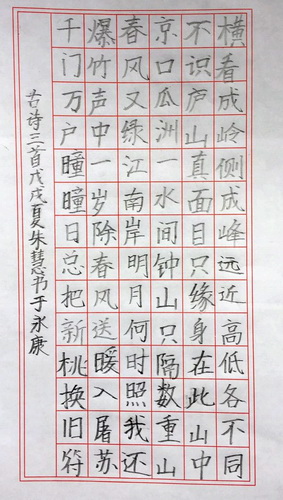 横看成岭侧成峰远近高低各不同
不识庐山真面目只缘身在此山中
京口瓜洲一水间钟山只隔数重山
春风又绿江南岸明月何时照我还
爆竹声中一岁除春风送暖入屠苏
千门万户瞳瞳日总把新桃换旧符
古诗三首戊戌夏朱慧书于永康